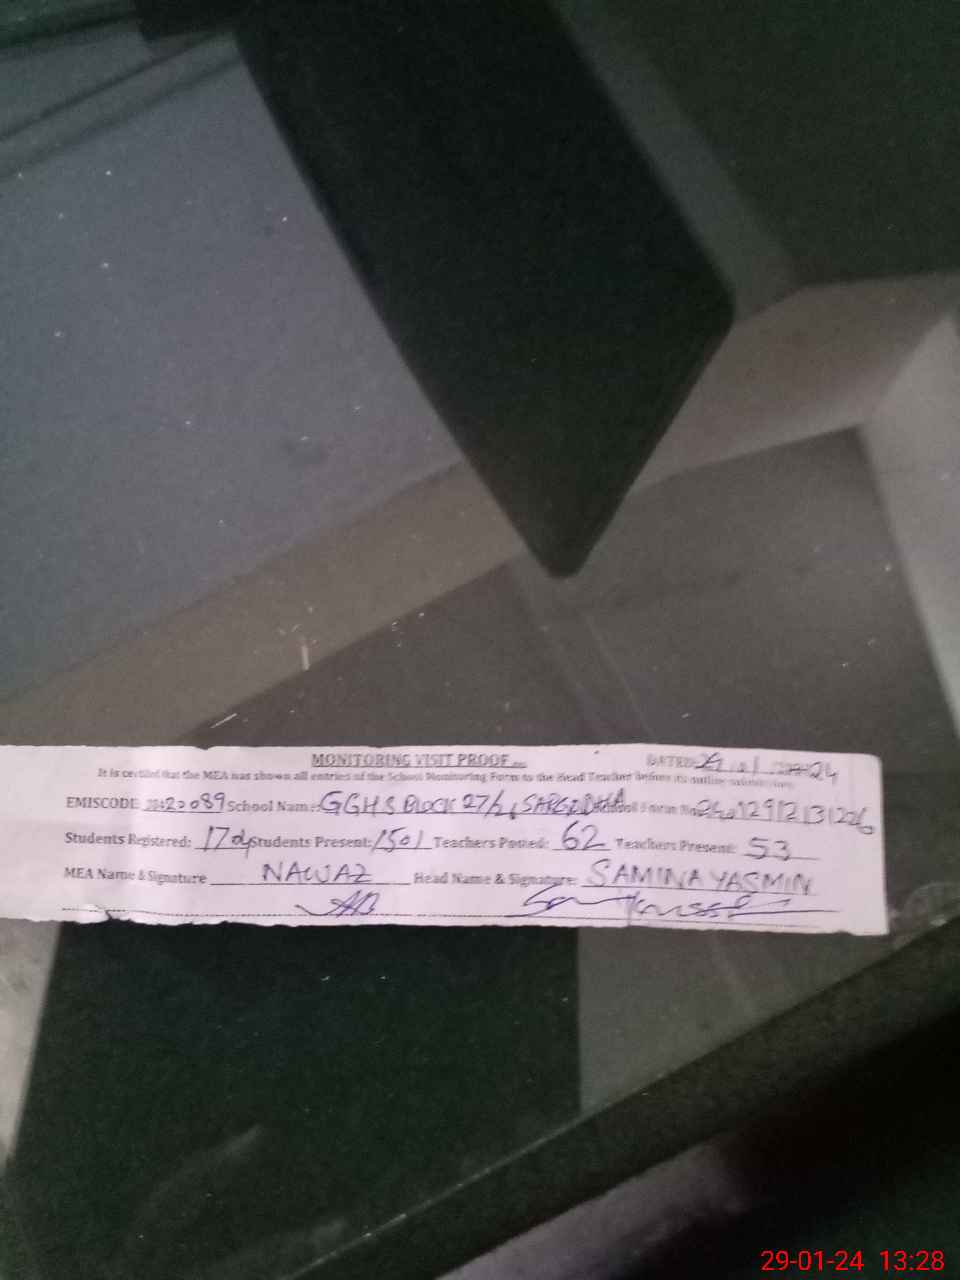 MONITORING VISIT PROOF
DATED: 24
It is certified that the MEA has shown all entries of the School Monitoring Form to the Head Teacher before its online submission.
EMISCODE 20089 School Name: GGHS BLOCK 27/26 SARGODHA
Students Registered: Students Present: 1501 Teachers Posted: 62 Teachers Present: 53
MEA Name & Signature NAWAZ Head Name & Signature: SAMINA YASMIN
29-01-24 13:28